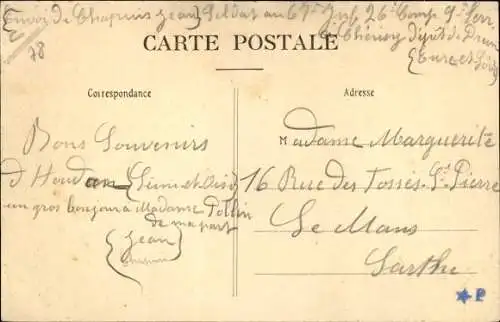 (Envoi de Chapuis Jean) Soldat au 67e Inf 26e Comp 9e
à Chérisy dépôt de Dreux
(Eure et Loir)
78
CARTE POSTALE
Correspondance
Bons Souvenirs
d'Houdan (Seine et Oise)
un gros bonjour à Madame
de ma part
(Jean)
Adresse
Madame Marguerite
16 Rue des Fossés St Pierre
Le Mans
Sarthe
P